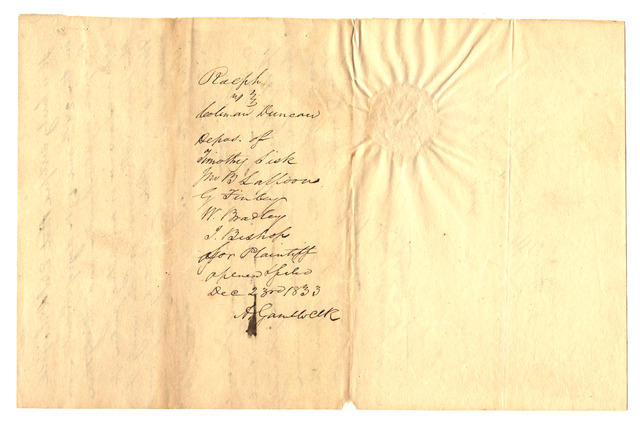 Ralph
vs
Coleman Duncan
Depos. of
Timothy Fisk
Jno B
G Finley
W. Bradley
J. Bishop
for Plaintiff
opened & filed
Dec 23rd 1833
A Gamble Clk